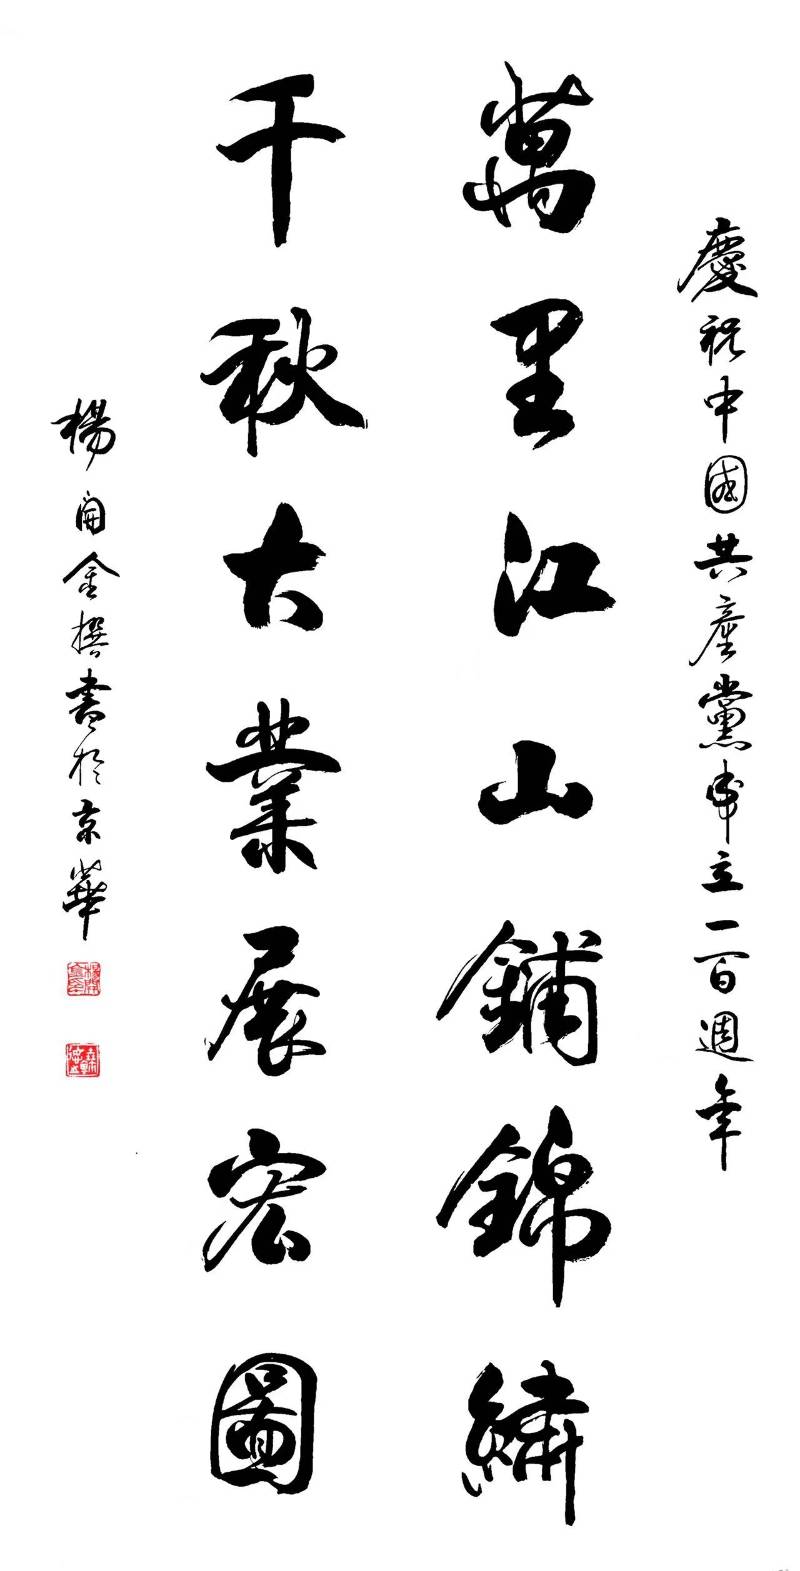 慶祝中國共產黨成立一百週年
萬里江山鋪錦繡
千秋大業展宏圖
楊開金撰書於京華